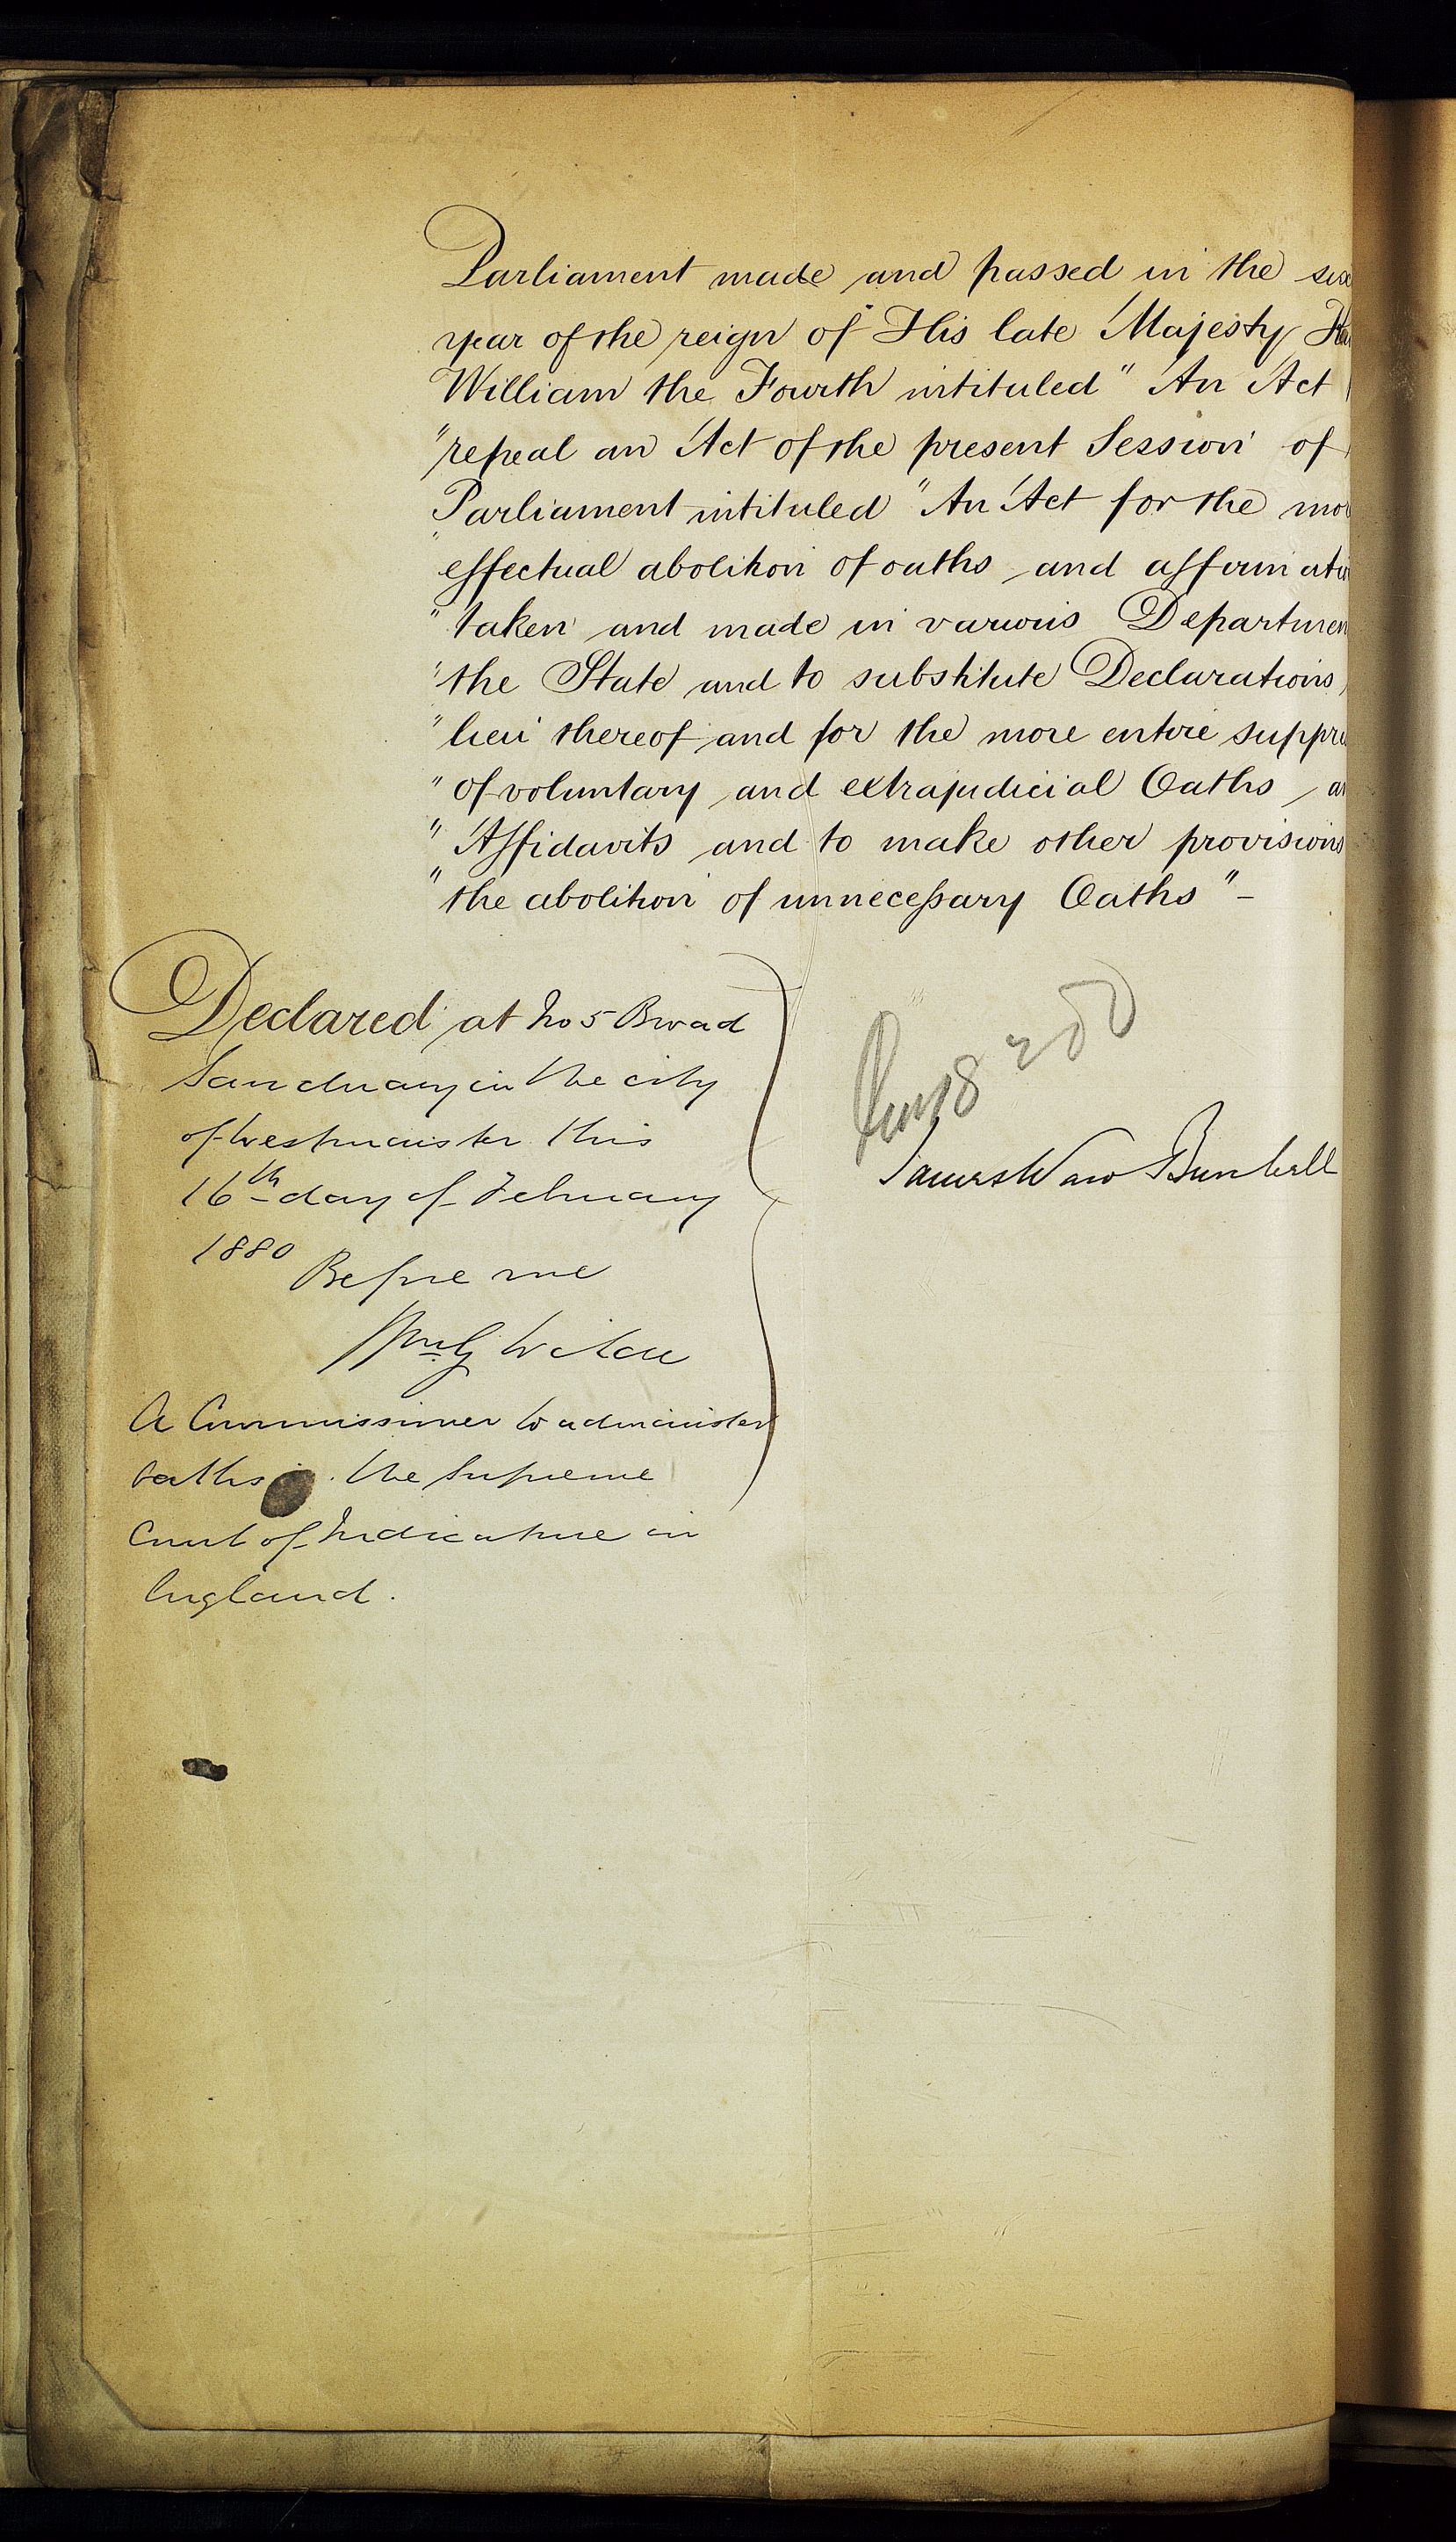 Parliament made and passed in the six
year of the reign of His late Majesty
William the Fourth intituled "An Act
"repeal an Act of the present Session of
Parliament intituled "An Act for the mo
"effectual abolition of oaths and affirmati
"taken and made in various Departmen
"the State and to substitute Declarations
"lieu thereof and for the more entire suppre
"of voluntary and extrajudicial Oaths a
"Affidavits and to make other provisions
"the abolition of unnecessary Oaths"-
Declared at No 5 Broad
Sanctuary in the city
of Westminster this
16th day of February
1880
Before me
Wm G
A Commissioner to administer
Oaths the Supreme
Court of Judicature in
England.
James Bunhill